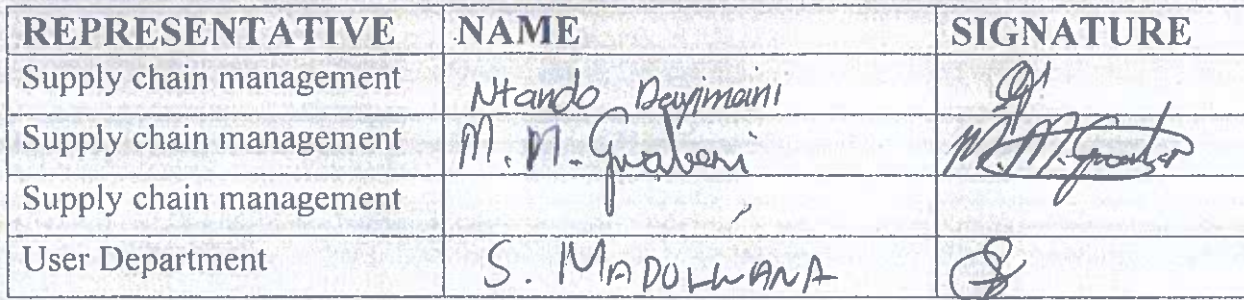 REPRESENTATIVE NAME SIGNATURE
Supply chain management Ntando
Supply chain management M. N.
Supply chain management
User Department S. MADULWANA